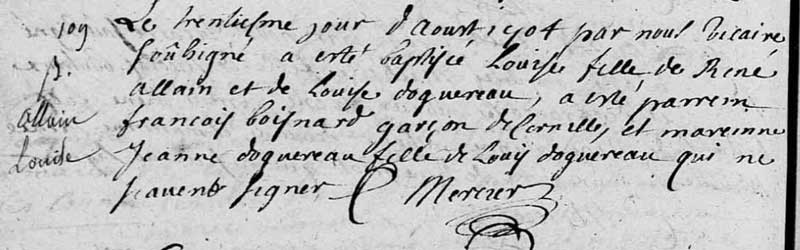 109 Le trentiesme jour d'aoust 1704 par nous vicaire
B. soubsigné a esté baptisée Louise fille de René
allain et de Louise doguereau, a esté parrein
allain francois boisnard garçon de Cornille, et mareinne
Louise Jeanne doguereau fille de Louis doguereau qui ne
scavent signer Mercier